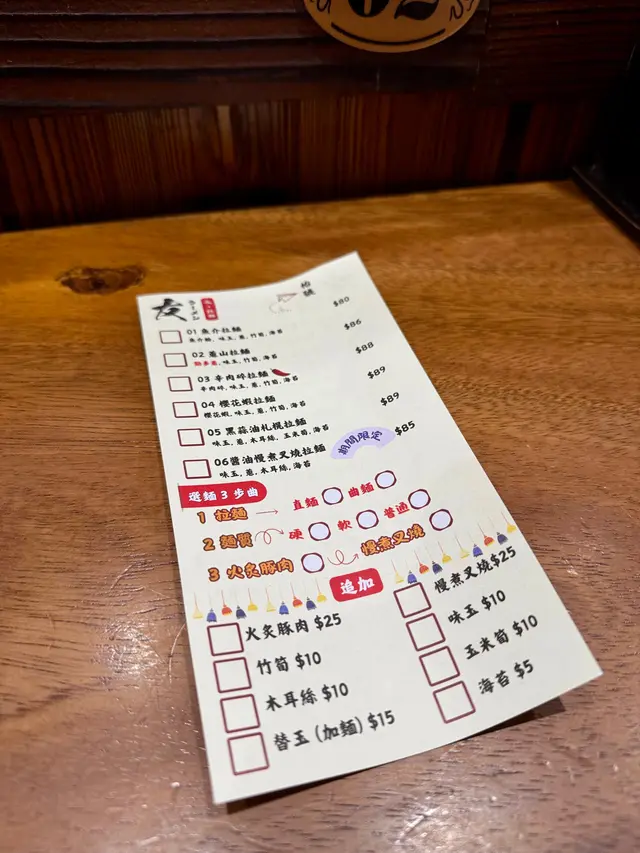 友
ラーメン
枱號
01 魚介拉麵 $80
魚介粉, 味玉, 蔥, 竹筍, 海苔
02 蔥山拉麵 $86
勁多蔥, 味玉, 竹筍, 海苔
03 辛肉碎拉麵 $88
辛肉碎, 味玉, 蔥, 竹筍, 海苔
04 櫻花蝦拉麵 $89
櫻花蝦, 味玉, 蔥, 竹筍, 海苔
05 黑蒜油札幌拉麵 $89
味玉, 蔥, 木耳絲, 玉米筍, 海苔
06醬油慢煮叉燒拉麵 期間限定 $85
味玉, 蔥, 木耳絲, 海苔
選麵 3 步曲
1 拉麵 直麵 曲麵
2 麵質 硬 軟 普通
3 火炙豚肉 慢煮叉燒
追加
火炙豚肉 $25
竹筍 $10
木耳絲 $10
替玉 (加麵) $15
慢煮叉燒$25
味玉 $10
玉米筍 $10
海苔 $5